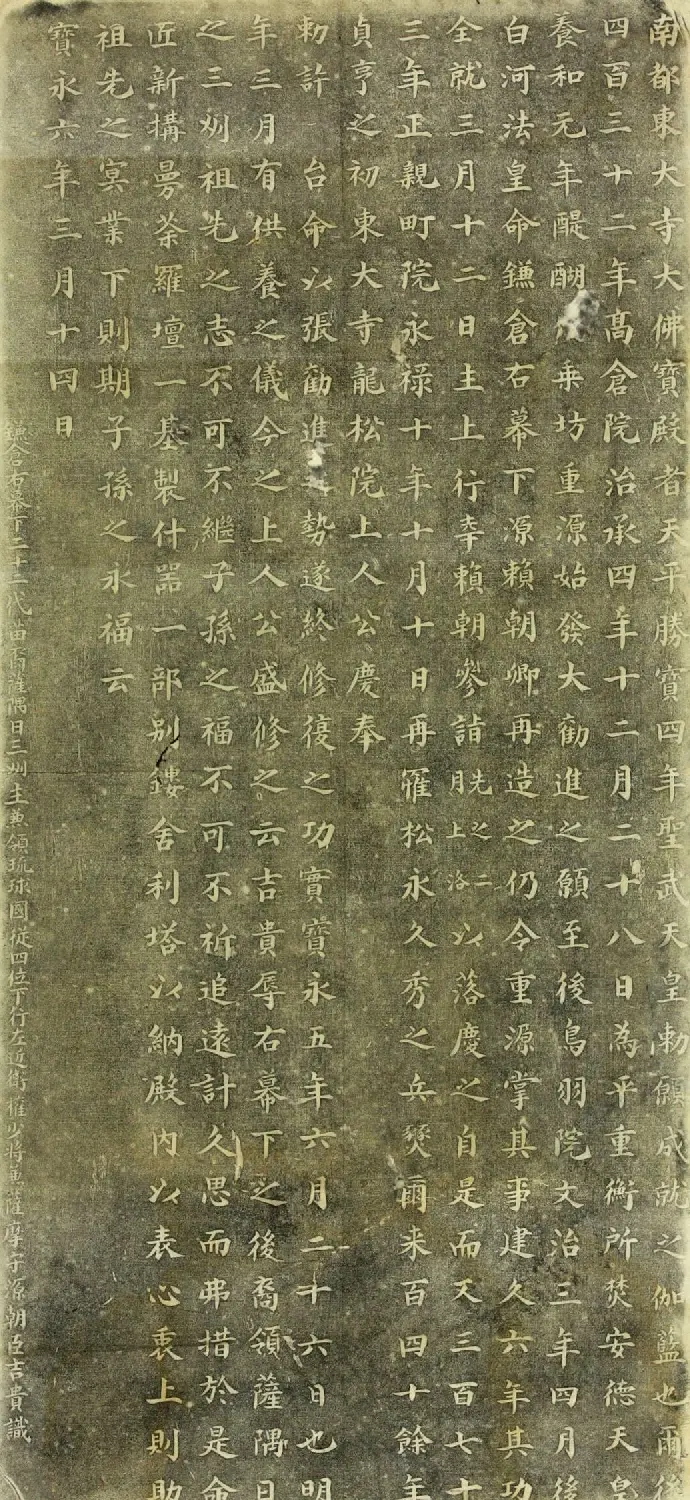 南都東大寺大佛寶殿者天平勝寶四年聖武天皇勅願成就之伽藍也爾後
四百三十二年高倉院治承四年十二月二十八日為平重衡所焚安德天皇
養和元年醍醐乘坊重源始發大勸進之願至後鳥羽院文治三年四月後
白河法皇命鎌倉右幕下源賴朝卿再造之仍令重源掌其事建久六年其功
全就三月十二日主上行幸賴朝參詣先之二月上洛以落慶之自是而天三百七十
三年正親町院永祿十年十月十日再罹松永久秀之兵燹爾来百四十餘年
貞亨之初東大寺龍松院上人公慶奉
勅許 台命以張勸進之勢遂終修復之功實寶永五年六月二十六日也明
年三月有供養之儀今之上人公盛修之云吉貴辱右幕下之後裔領薩隅日
之三州祖先之志不可不繼子孫之福不可不祈追遠計久思而弗措於是命
匠新構曼荼羅壇一基製什器一部别鏤舍利塔以納殿内以表心衷上則助
祖先之冥業下則期子孫之永福云
寶永六年三月十四日
鎌倉右幕下二十二代苗裔薩隅日三州主兼領琉球國從四位下行左近衛權少將兼薩摩守源朝臣吉貴識